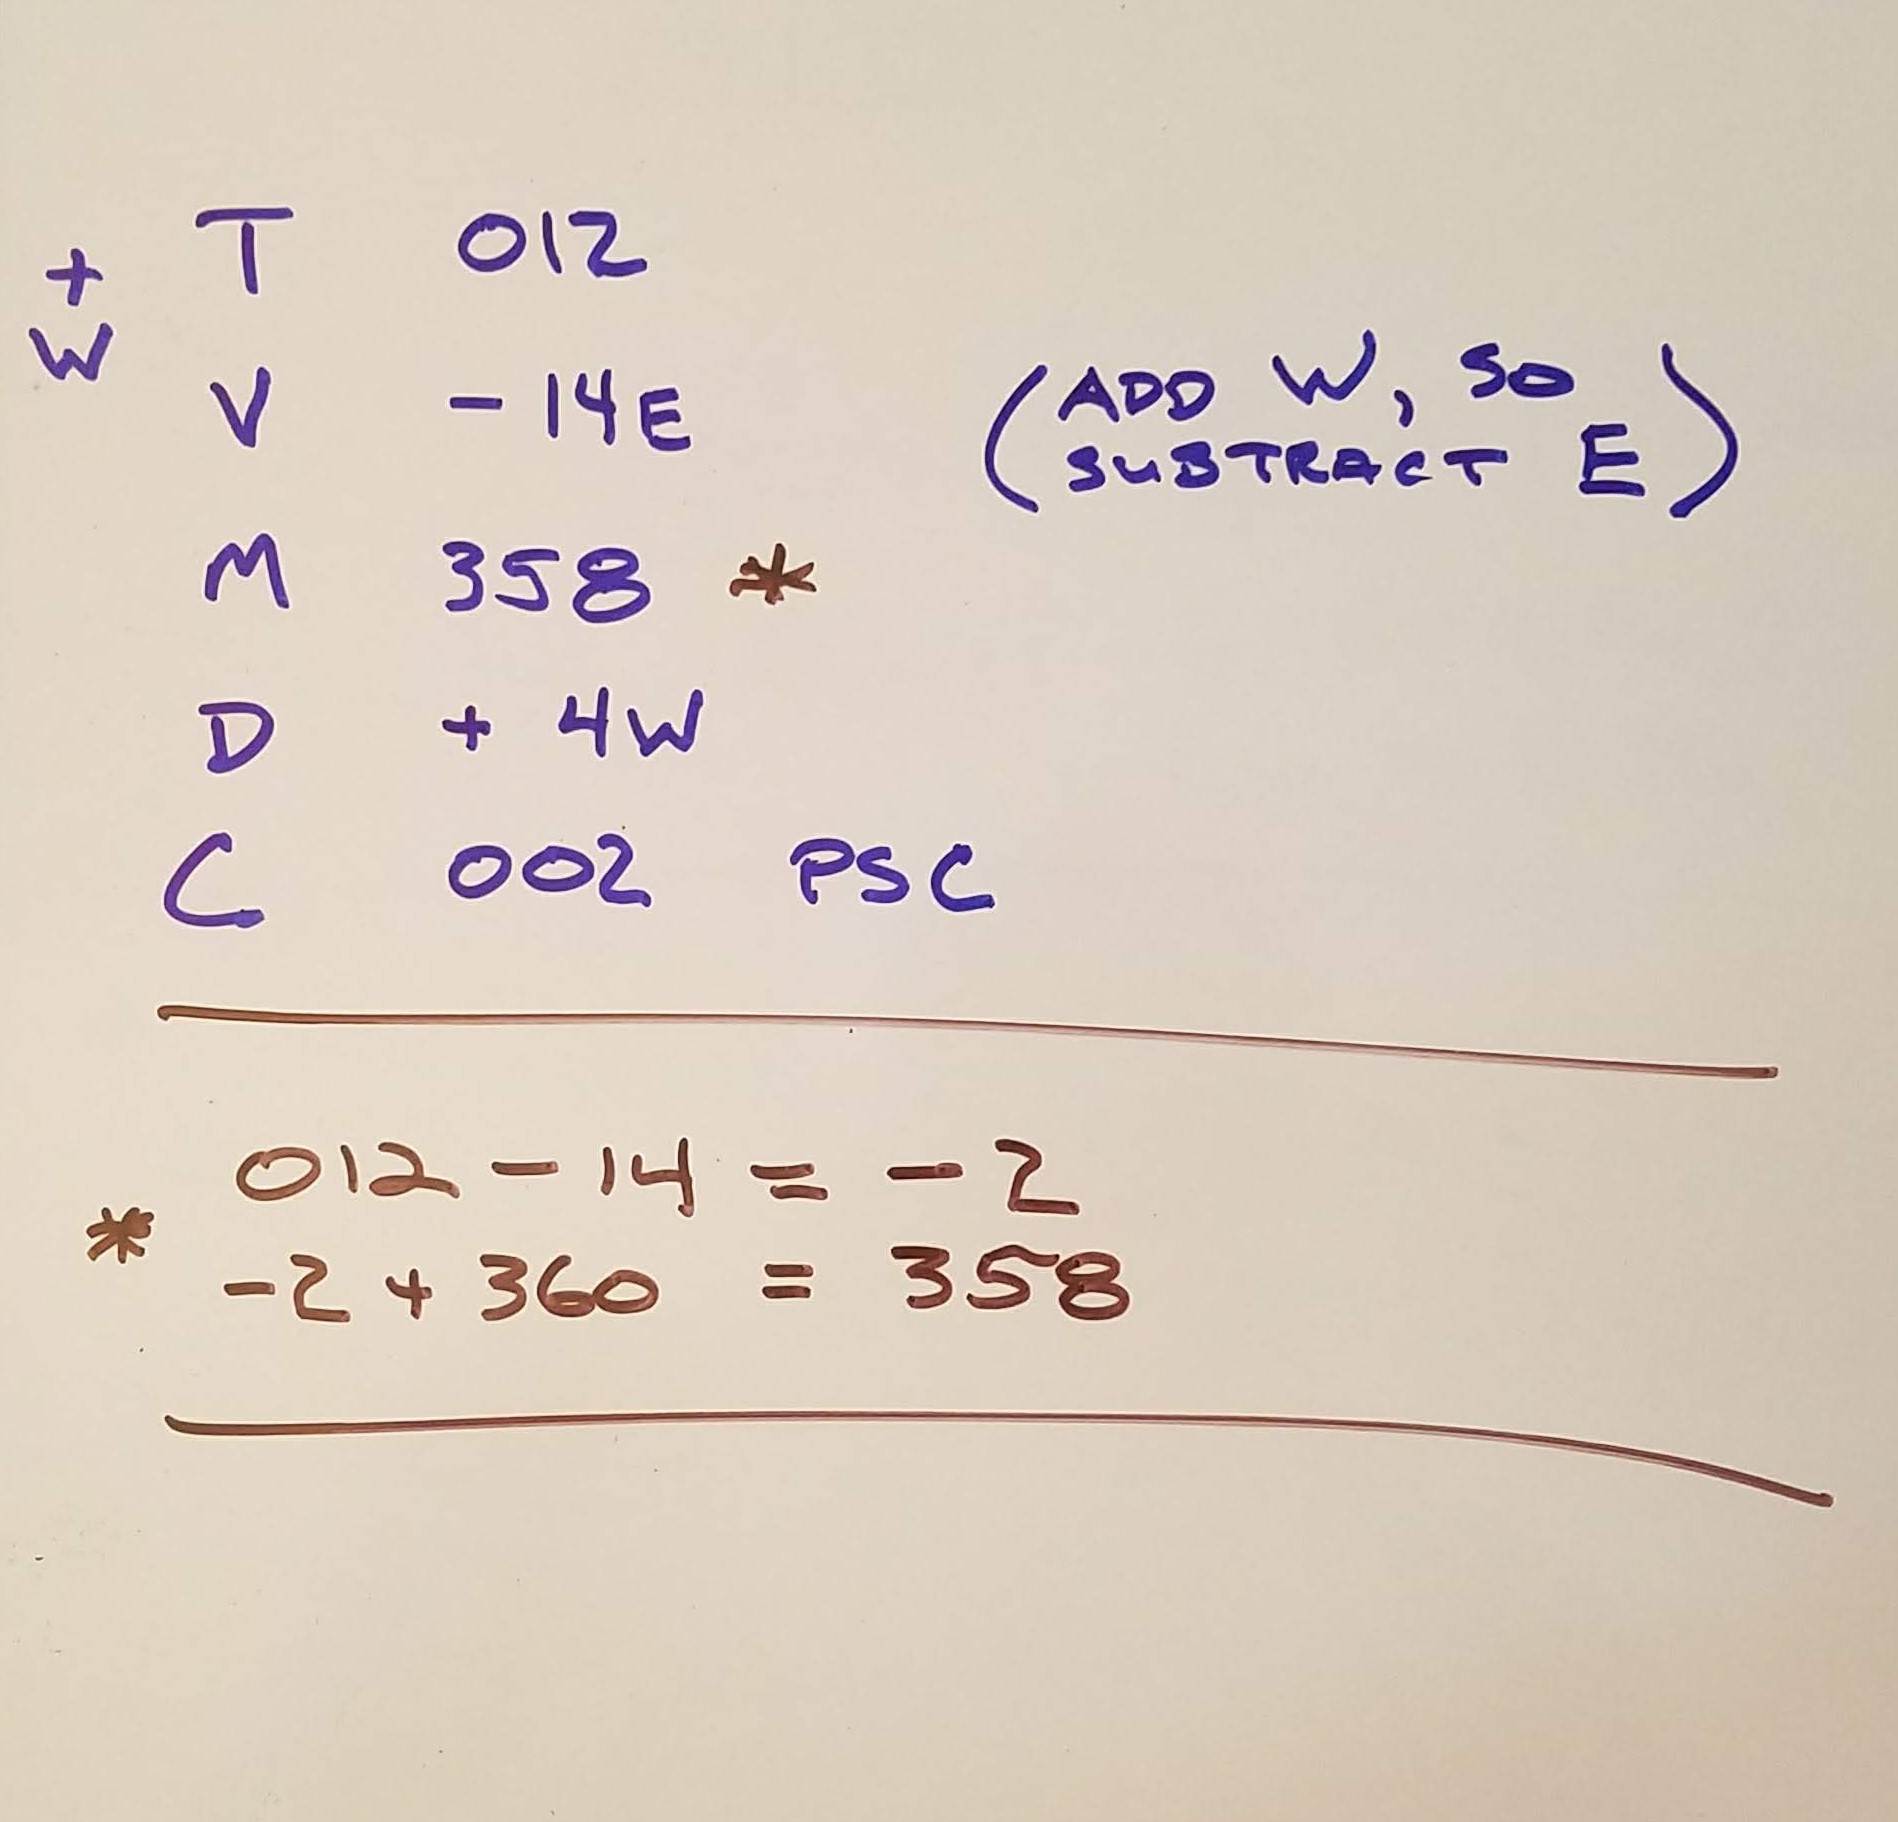 + T 012
W
V - 14E (ADD W, SO
SUBTRACT E)
M 358 *
D + 4W
C 002 PSC
012 - 14 = - 2
*
-2 + 360 = 358